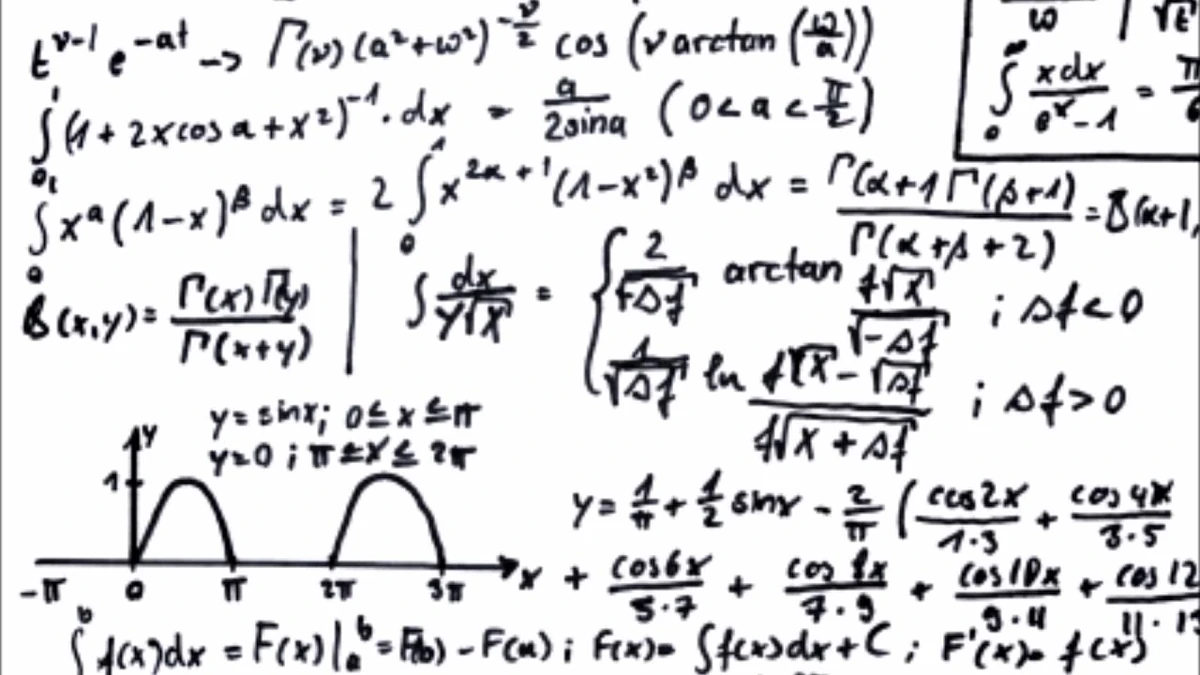 t^{ν-1} e^{-at} -> Γ(ν) (a²+ω²)^{-ν/2} cos (ν arctan (ω/a))
ω | √t
∫₀^∞ x dx / (e^x - 1) = π
∫₀¹ (1 + 2x cos a + x²)^{-1} · dx = a / (2 sin a) (0 < a < π/2)
∫₀¹ x^a (1-x)^β dx = 2 ∫₀¹ x^{2α+1} (1-x²)^β dx = Γ(α+1 Γ(β+1) / Γ(α+β+2) = B(α+1,
B(x,y) = Γ(x) Γ(y) / Γ(x+y)
∫ dx / (y√x) = { 2 / √-Δf arctan f√x / √-Δf ; Δf < 0
1 / √Δf ln f√x - √Δf / f√x + Δf ; Δf > 0
y = sin x; 0 ≤ x ≤ π
y = 0 ; π ≤ x ≤ 2π
y
1
-π 0 π 2π 3π x
y = 1/π + 1/2 sin x - 2/π ( cos 2x / 1·3 + cos 4x / 3·5
+ cos 6x / 5·7 + cos 8x / 7·9 + cos 10x / 9·11 + cos 12 / 11·13
∫ₐ^b f(x) dx = F(x) |ₐ^b = F(b) - F(a) ; F(x) = ∫ f(x) dx + C ; F'(x) = f(x)